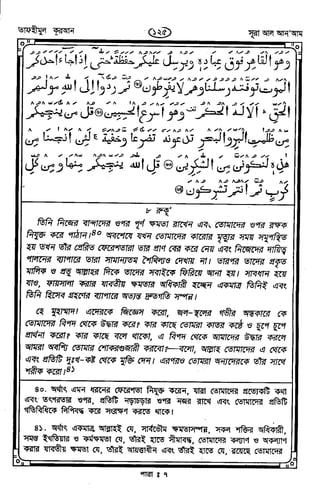 তাফহীমুল কুরআন
১২৫
সূরা আল আন'আম
وَهُوَ الْقَاهِرُ فَوْقَ عِبَادِهٖ وَيُرْسِلُ عَلَيْكُمْ حَفَظَةً حَتّٰى اِذَا جَآءَ اَحَدَكُمُ
الْمَوْتُ تَوَفَّتْهُ رُسُلُنَا وَهُمْ لَا يُفَرِّطُوْنَ ثُمَّ رُدُّوْٓا اِلَى اللّٰهِ مَوْلٰىهُمُ
الْحَقِّ ۚ اَلَا لَهُ الْحُكْمُ وَهُوَ اَسْرَعُ الْحٰسِبِيْنَ قُلْ مَنْ يُّنَجِّيْكُمْ
مِّنْ ظُلُمٰتِ الْبَرِّ وَالْبَحْرِ تَدْعُوْنَهٗ تَضَرُّعًا وَّخُفْيَةً ۚ لَئِنْ اَنْجٰىنَا مِنْ
هٰذِهٖ لَنَكُوْنَنَّ مِنَ الشّٰكِرِيْنَ قُلِ اللّٰهُ يُنَجِّيْكُمْ مِّنْهَا وَمِنْ كُلِّ
كَرْبٍ ثُمَّ اَنْتُمْ تُشْرِكُوْنَ
৮ রুকূ'
তিনি নিজের বান্দাদের ওপর পূর্ণ ক্ষমতা রাখেন এবং তোমাদের ওপর রক্ষক
নিযুক্ত করে পাঠান।৪০ অবশেষে যখন তোমাদের কারোর মৃত্যুর সময় সমুপস্থিত
হয় তখন তাঁর প্রেরিত ফেরেশতারা তার প্রাণ বের করে নেয় এবং নিজেদের দায়িত্ব
পালনের ব্যাপারে তারা সামান্যতম শৈথিল্যও দেখায় না। তারপর তাদের প্রকৃত
মালিক ও প্রভু আল্লাহর দিকে তাদের সবাইকে ফিরিয়ে আনা হয়। সাবধান হয়ে
যাও, ফায়সালা করার যাবতীয় ক্ষমতার অধিকারী হচ্ছেন একমাত্র তিনিই এবং
তিনি হিসেব গ্রহণের ব্যাপারে অত্যন্ত দ্রুতগতি সম্পন্ন।
হে মুহাম্মাদ! এদেরকে জিজ্ঞেস করো, জল-স্থলের গভীর অন্ধকারে কে
তোমাদের বিপদ থেকে উদ্ধার করে? কার কাছে তোমরা কাতর কণ্ঠে ও চুপে চুপে
প্রার্থনা করো? কার কাছে বলে থাকো, এ বিপদ থেকে আমাদের উদ্ধার করলে
আমরা অবশ্যি তোমার শোকরগুজারী করবো?—বলো, আল্লাহ তোমাদের এ থেকে
এবং প্রতিটি দুঃখ–কষ্ট থেকে মুক্তি দেন। এরপরও তোমরা অন্যদেরকে তাঁর সাথে
শরীক করো।৪১
৪০. অর্থাৎ এমন ধরনের ফেরেশতা নিযুক্ত করেন, যারা তোমাদের প্রত্যেকটি কথা
এবং তৎপরতার ওপর, প্রতিটি নড়াচড়ার ওপর নজর রাখে এবং তোমাদের প্রতিটি
গতিবিধিকে লিপিবদ্ধ করে সংরক্ষণ করতে থাকে।
৪১. অর্থাৎ একমাত্র আল্লাহই যে, সার্বভৌম ক্ষমতাসম্পন্ন, সকল শক্তির অধিকারী,
সমস্ত ইখতিয়ার ও কর্মক্ষমতা যে, তাঁরই হাতে সীমাবদ্ধ, তোমাদের কল্যাণ ও অকল্যাণ
করার যাবতীয় ক্ষমতা যে, তাঁরই আয়ত্তাধীন এবং তাঁরই হাতে যে, রয়েছে তোমাদের
পারা ঃ ৭